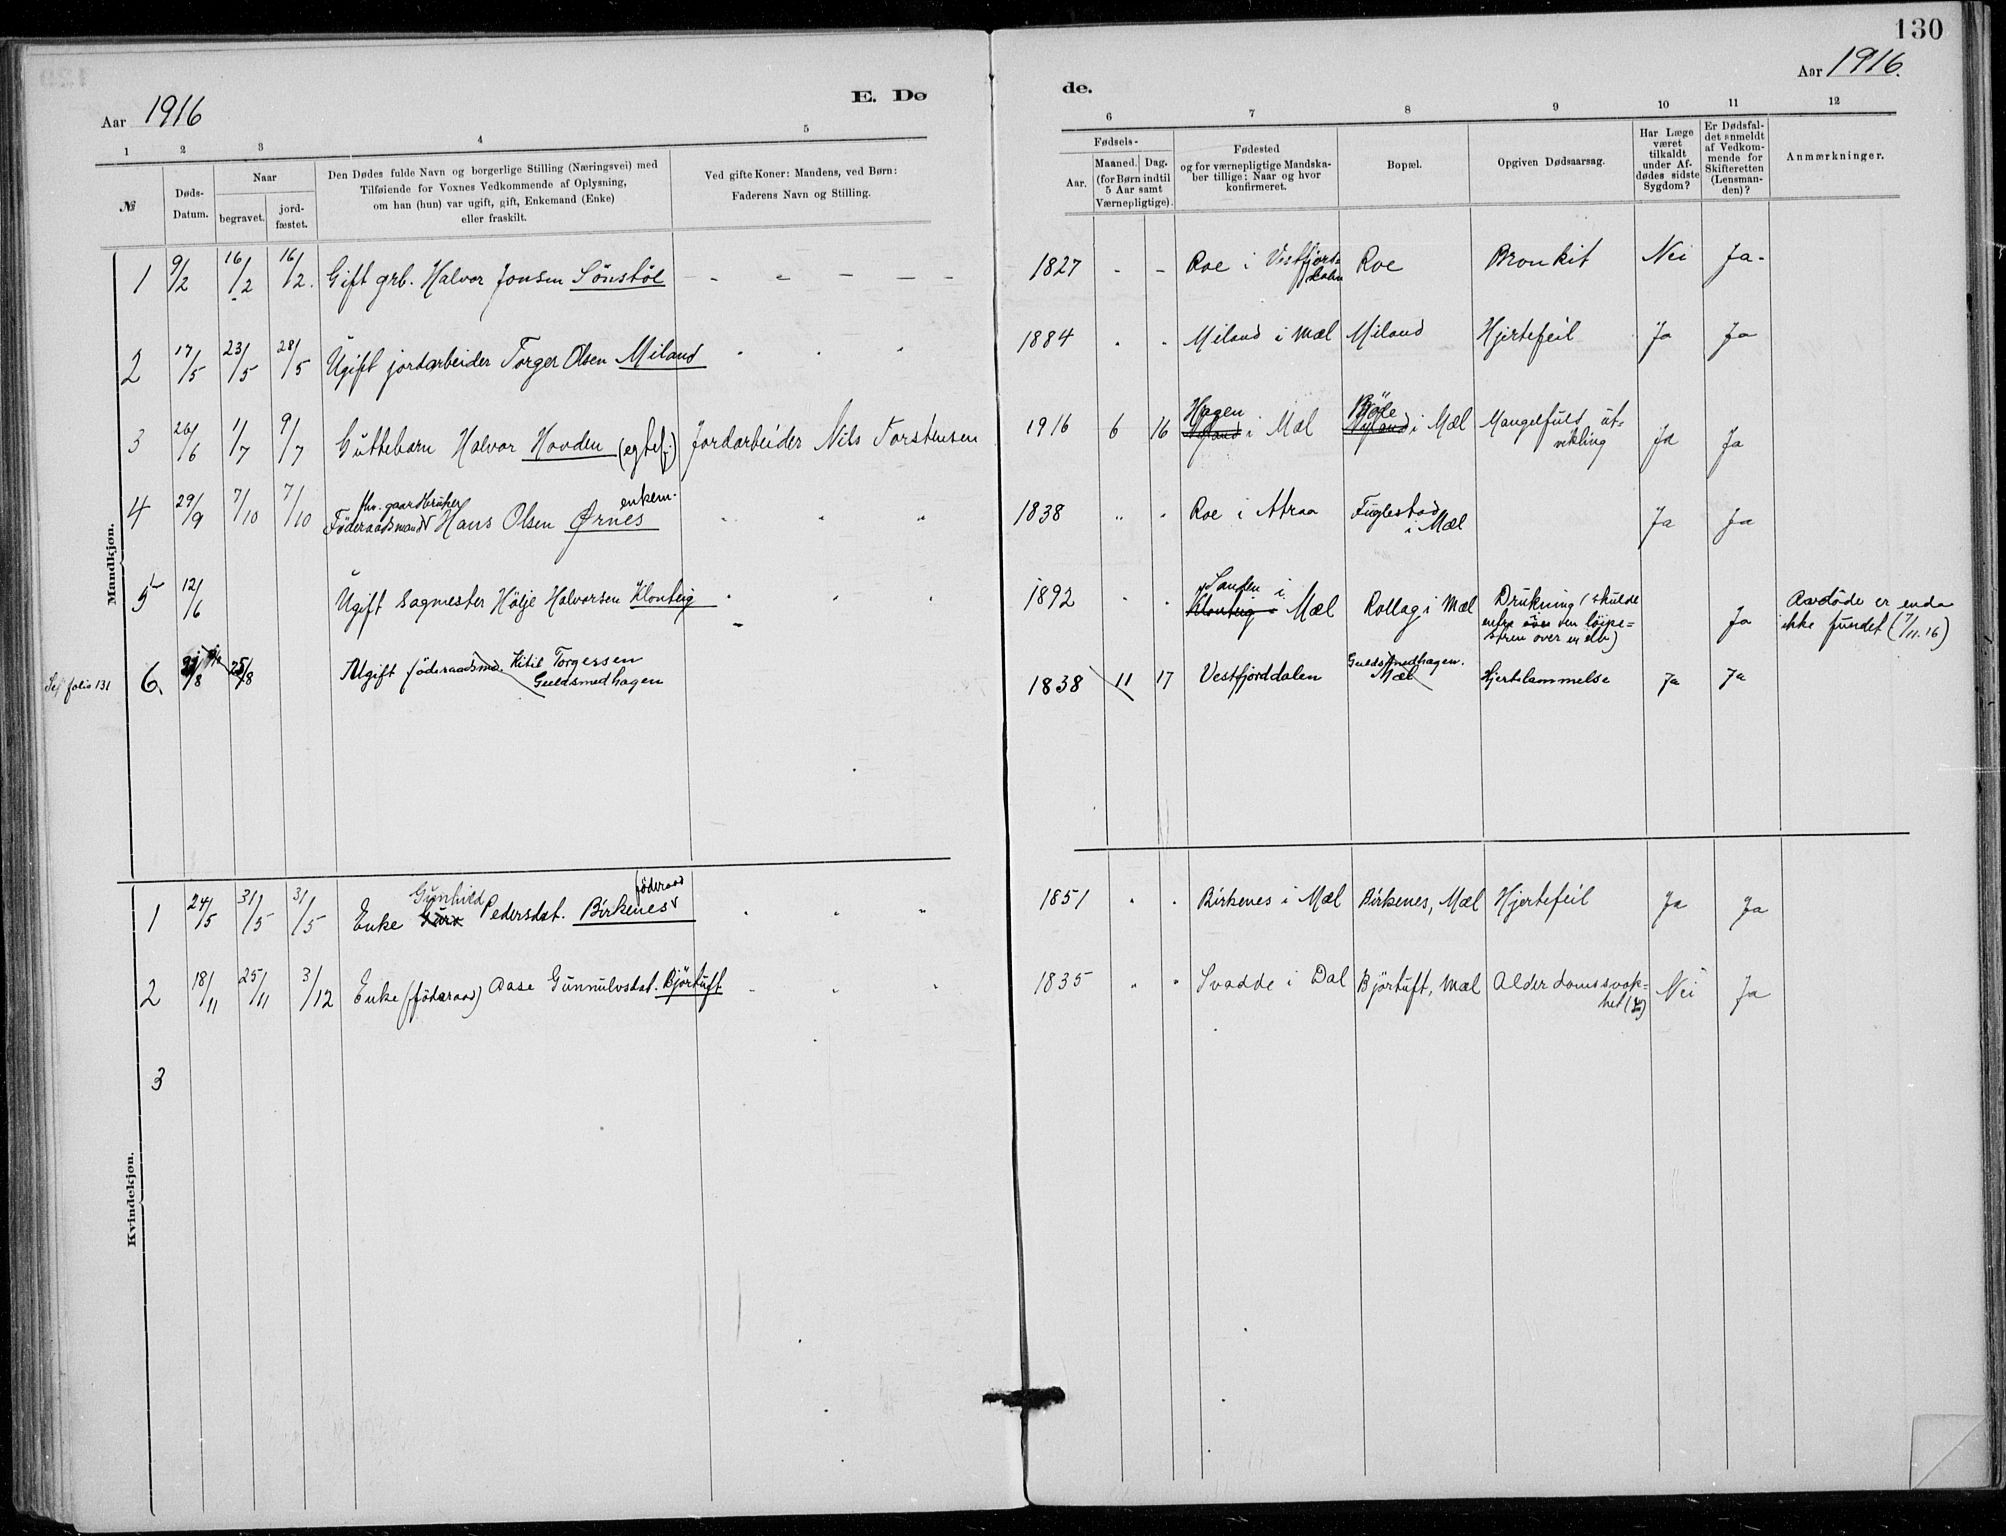 130
Aar 1916
E. Dø
de.
Aar 1916.
1 2 3 4 5 6 7 8 9 10 11 12
№
Døds-
Datum.
Naar
begravet.
jord-
fæstet.
Den Dødes fulde Navn og borgerlige Stilling (Næringsvei) med
Tilføiende for Voxnes Vedkommende af Oplysning,
om han (hun) var ugift, gift, Enkemand (Enke)
eller fraskilt.
Ved gifte Koner: Mandens, ved Børn:
Faderens Navn og Stilling.
Fødsels-
Aar.
Maaned. Dag.
(for Børn indtil
5 Aar samt
Værnepligtige).
Fødested
og for værnepligtige Mandska-
ber tillige: Naar og hvor
konfirmeret.
Bopæl.
Opgiven Dødsaarsag.
Har Læge
været
tilkaldt
under Af-
dødes sidste
Sygdom?
Er Dødsfal-
det anmeldt
af Vedkom-
mende for
Skifteretten
(Lensman-
den)?
Anmærkninger.
Mandkjøn.
1 9/2 16/2 16/2. Gift grb. Halvor Jonsen Sönstöl - - - - - 1827 - - Roe i Vestfjord-
dalen Roe Bronkit Nei Ja -
2 17/5 23/5 28/5 Ugift jordarbeider Torger Olsen Miland " " " 1884 " " Miland i Mæl Miland Hjertefeil Ja Ja
3 26/6 1/7 9/7 Guttebarn Halvor Hovden (egtef.) Jordarbeider Nils Torstensen 1916 6 16 Hagen
Miland i Mæl Böle
Miland i Mæl Mangelfuld ut-
vikling Ja Ja
4 29/9 7/10 7/10 fhv. gaardbruker enkem.
Föderaadsmand Hans Olsen Ørnes " " " 1838 " " Roe i Atraa Fuglestad
i Mæl Ja Ja
5 12/6 Ugift sagmester Hölje Halvorsen Klonteig " " " 1892 " " Sanden i
Klonteig Mæl Rollag i Mæl Drukning (skulde
entre over den löipe-
streng over en elv) Ja Avdöde er enda
ikke fundet (7/11.16)
Se folio 131
6. /8 25/8 Ugift föderaadsmd. Kitil Torgersen
Guldsmedhagen 1838 11 17 Vestfjorddalen Guldsmedhagen.
Mæl Hjertelammelse Ja Ja
Kvindekjøn.
1 24/5 31/5 31/5 Enke Gunhild
Guro Pedersdat. Birkenes föderaad " " " 1851 " " Birkenes i Mæl Birkenes, Mæl Hjertefeil Ja Ja
2 18/11 25/11 3/12 Enke (föderaad) Aase Gunnulvsdat. Björtuft " " " 1835 " " Svadde i Dal Björtuft, Mæl Alderdomssvak-
het Nei Ja
3